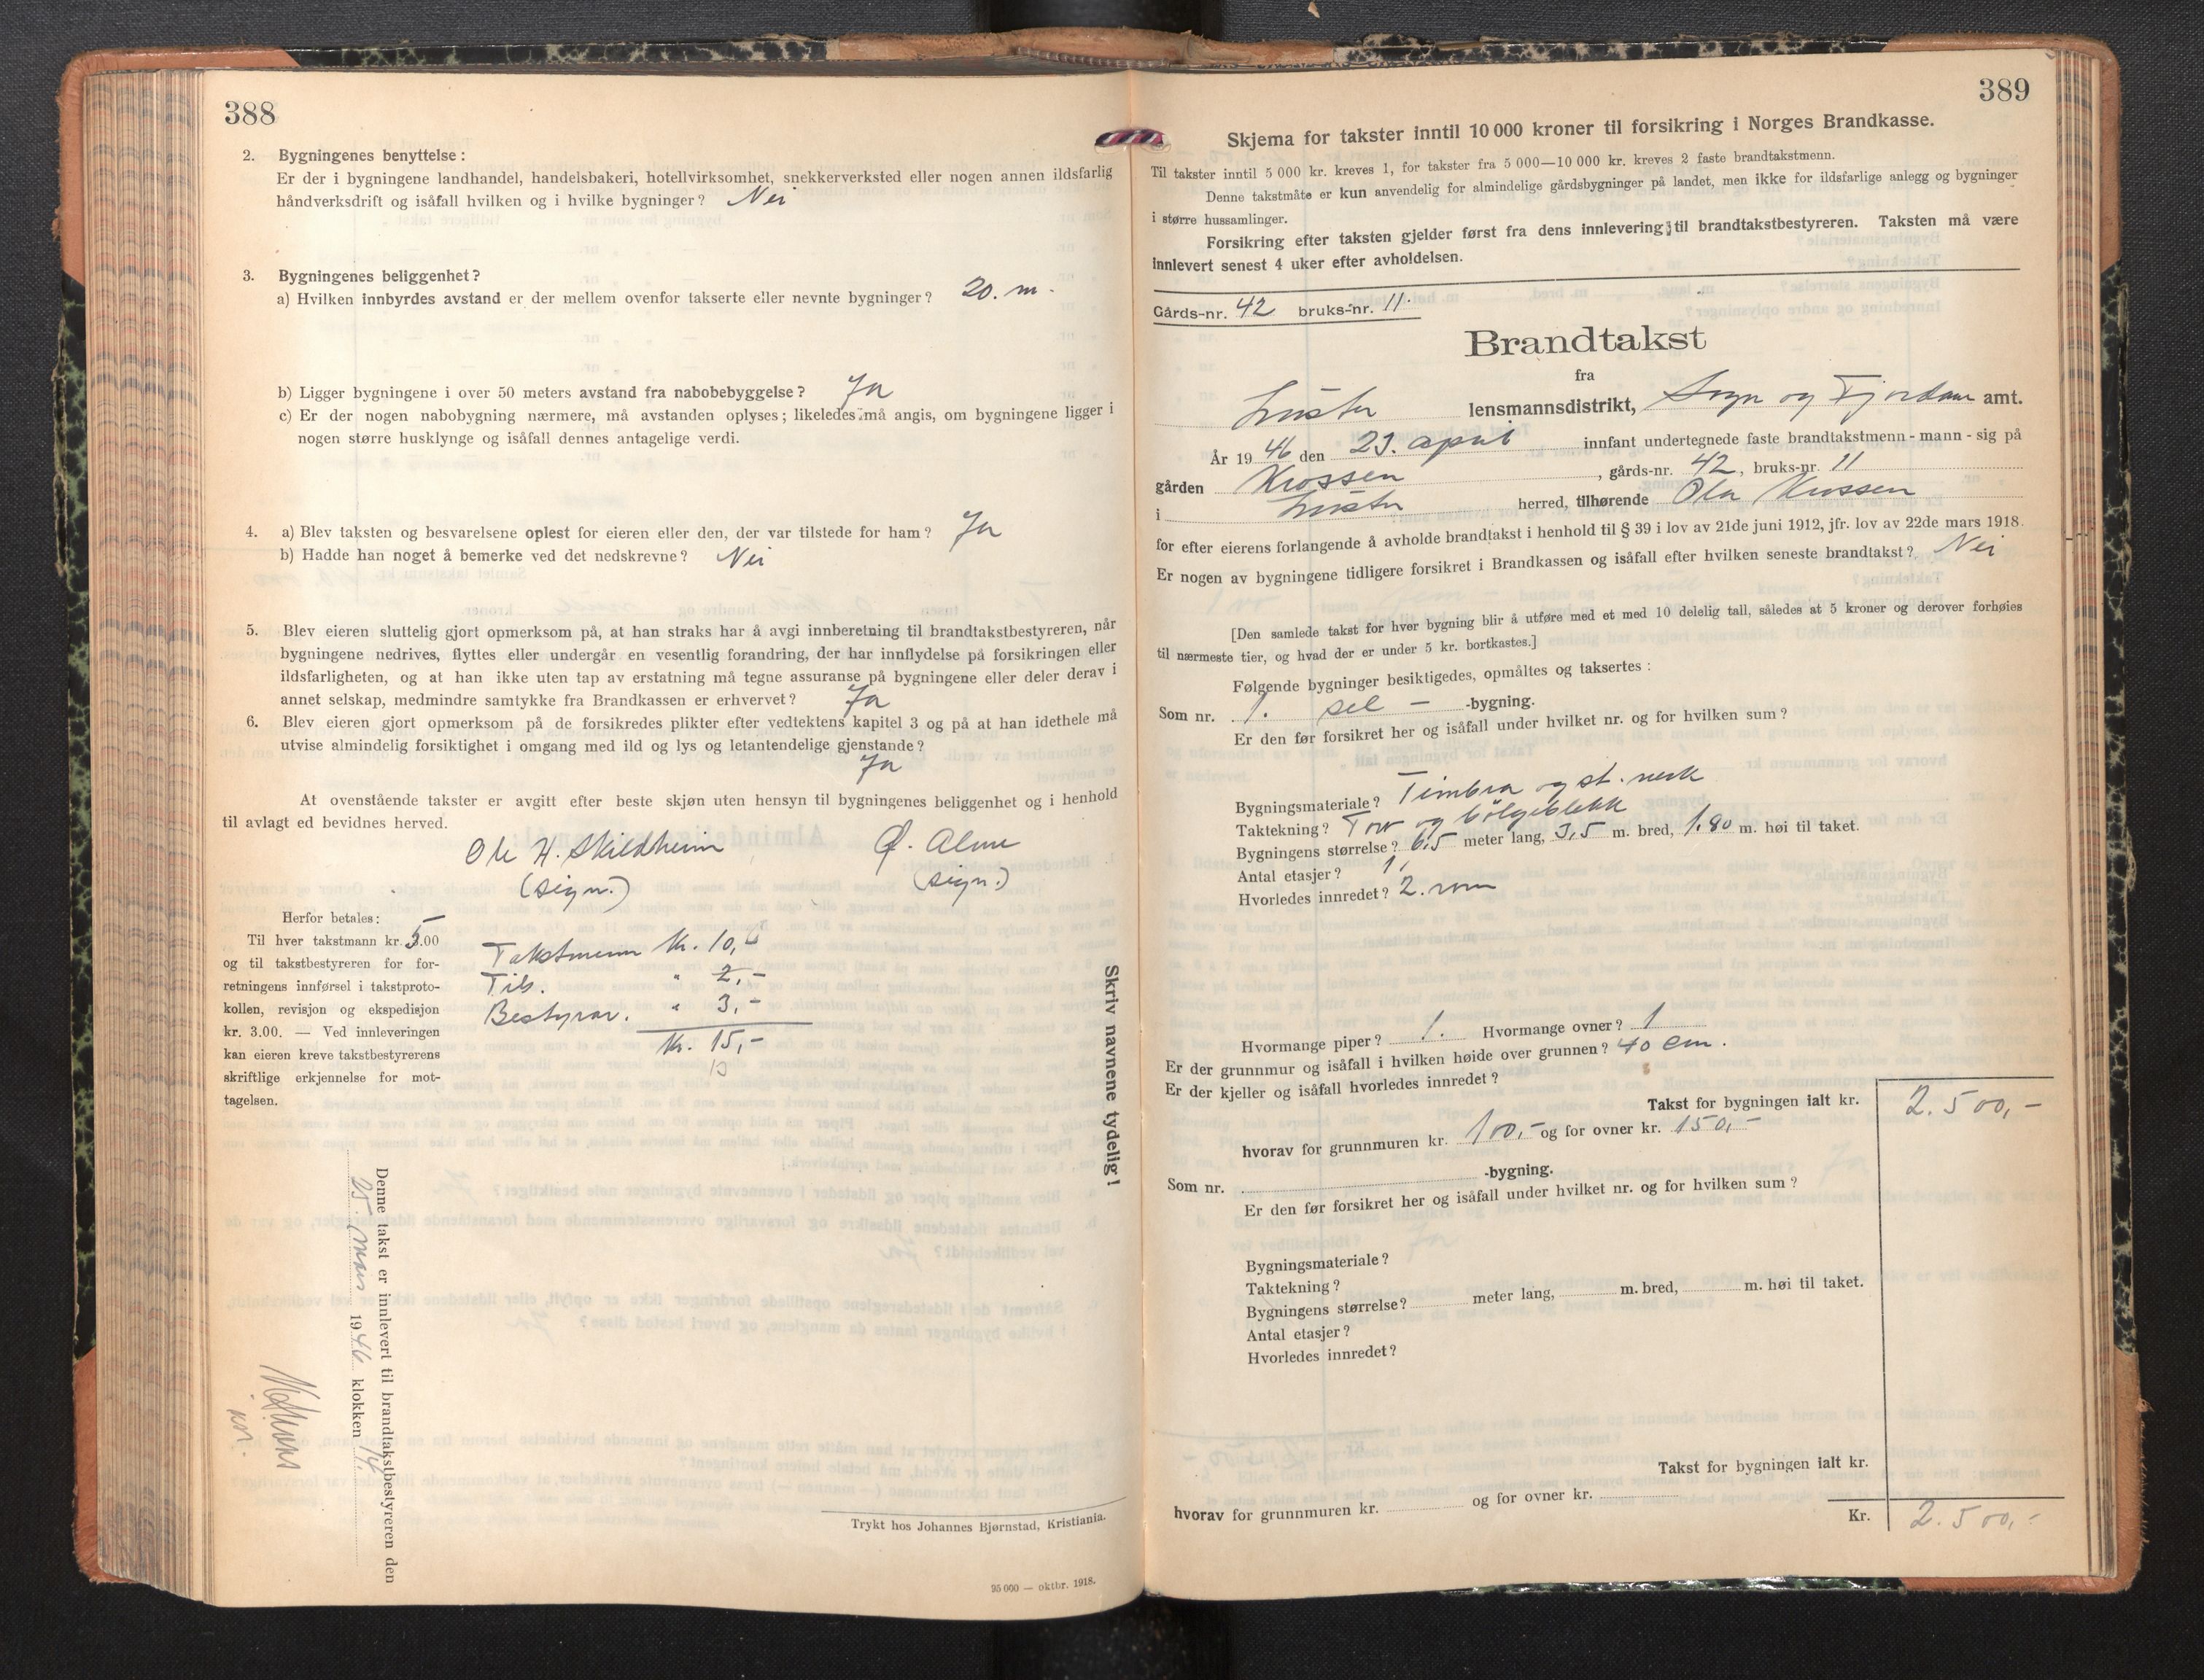 388
2. Bygningenes benyttelse:
Er der i bygningene landhandel, handelsbakeri, hotellvirksomhet, snekkerverksted eller nogen annen ildsfarlig
håndverksdrift og isåfall hvilken og i hvilke bygninger? Nei
3. Bygningenes beliggenhet?
a) Hvilken innbyrdes avstand er der mellem ovenfor takserte eller nevnte bygninger? 20. m.
b) Ligger bygningene i over 50 meters avstand fra nabobebyggelse? Ja
c) Er der nogen nabobygning nærmere, må avstanden oplyses; likeledes må angis, om bygningene ligger i
nogen større husklynge og isåfall dennes antagelige verdi.
4. a) Blev taksten og besvarelsene oplest for eieren eller den, der var tilstede for ham? Ja
b) Hadde han noget å bemerke ved det nedskrevne? Nei
5. Blev eieren sluttelig gjort opmerksom på, at han straks har å avgi innberetning til brandtakstbestyreren, når
bygningene nedrives, flyttes eller undergår en vesentlig forandring, der har innflydelse på forsikringen eller
ildsfarligheten, og at han ikke uten tap av erstatning må tegne assuranse på bygningene eller deler derav i
annet selskap, medmindre samtykke fra Brandkassen er erhvervet? Ja
6. Blev eieren gjort opmerksom på de forsikredes plikter efter vedtektens kapitel 3 og på at han idethele må
utvise almindelig forsiktighet i omgang med ild og lys og letantendelige gjenstande?
Ja
At ovenstående takster er avgitt efter beste skjøn uten hensyn til bygningenes beliggenhet og i henhold
til avlagt ed bevidnes herved.
Ole H. Skildheim Ø. Alme
(sign.) (sign.)
Herfor betales:
Til hver takstmann kr. 5.00
og til takstbestyreren for for-
retningens innførsel i takstproto-
kollen, revisjon og ekspedisjon
kr. 3.00. — Ved innleveringen
kan eieren kreve takstbestyrerens
skriftlige erkjennelse for mot-
tagelsen.
Takstmenn kr. 10,-
Tils. " 2,-
Bestyrar. " 3,-
Kr. 15,-
13
Skriv navnene tydelig!
Denne takst er innlevert til brandtakstbestyreren den
25. mars 1946 klokken 14.
Trykt hos Johannes Bjørnstad, Kristiania.
95 000 — oktbr. 1918.
389
Skjema for takster inntil 10 000 kroner til forsikring i Norges Brandkasse.
Til takster inntil 5 000 kr. kreves 1, for takster fra 5 000—10 000 kr. kreves 2 faste brandtakstmenn.
Denne takstmåte er kun anvendelig for almindelige gårdsbygninger på landet, men ikke for ildsfarlige anlegg og bygninger
i større hussamlinger.
Forsikring efter taksten gjelder først fra dens innlevering til brandtakstbestyreren. Taksten må være
innlevert senest 4 uker efter avholdelsen.
Gårds-nr. 42 bruks-nr. 11.
Brandtakst
fra
Luster lensmannsdistrikt, Sogn og Fjordane amt.
År 1946 den 23. april innfant undertegnede faste brandtakstmenn - mann - sig på
gården Krossen, gårds-nr. 42, bruks-nr. 11
i Luster herred, tilhørende Ola Krossen
for efter eierens forlangende å avholde brandtakst i henhold til § 39 i lov av 21de juni 1912, jfr. lov av 22de mars 1918.
Er nogen av bygningene tidligere forsikret i Brandkassen og isåfall efter hvilken seneste brandtakst? Nei
[Den samlede takst for hver bygning blir å utføre med et med 10 delelig tall, således at 5 kroner og derover forhøies
til nærmeste tier, og hvad der er under 5 kr. bortkastes.]
Følgende bygninger besiktigedes, opmåltes og taksertes:
Som nr. 1. sel — -bygning.
Er den før forsikret her og isåfall under hvilket nr. og for hvilken sum?
Bygningsmateriale? Timbra og st. verk
Taktekning? Torv og bølgeblekk
Bygningens størrelse? 6,5 meter lang, 3,5 m. bred, 1.80 m. høi til taket.
Antal etasjer? 1,
Hvorledes innredet? 2. rom
Hvormange piper? 1. Hvormange ovner? 1
Er der grunnmur og isåfall i hvilken høide over grunnen? 40 cm.
Er der kjeller og isåfall hvorledes innredet?
Takst for bygningen ialt kr. 2.500,-
hvorav for grunnmuren kr. 100,- og for ovner kr. 150,-
Som nr. -bygning.
Er den før forsikret her og isåfall under hvilket nr. og for hvilken sum?
Bygningsmateriale?
Taktekning?
Bygningens størrelse? meter lang, m. bred, m. høi til taket.
Antal etasjer?
Hvorledes innredet?
Takst for bygningen ialt kr.
hvorav for grunnmuren kr. og for ovner kr.
Kr. 2.500,-